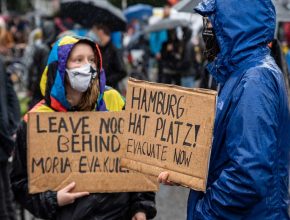 LEAVE NO
BEHIND
MORIA EVAKUI
HAMBURG
HAT PLATZ!
EVACUATE NOW